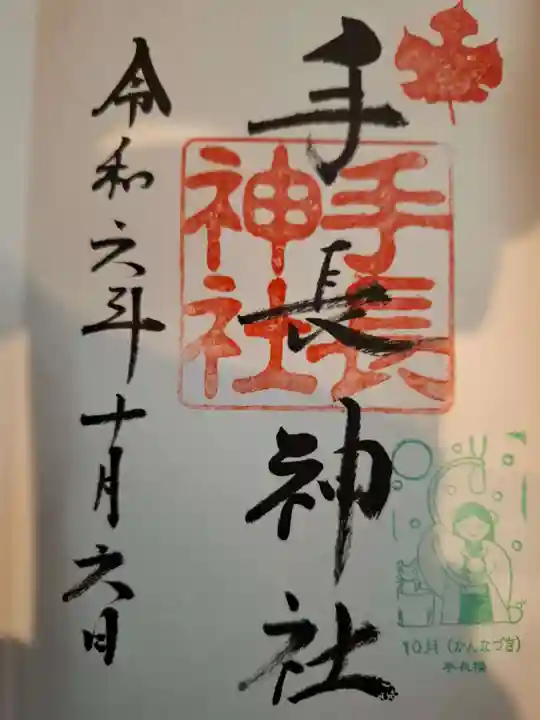 手長神社
手長
神社
令和六年十月六日
10月(かんなづき)
手長様